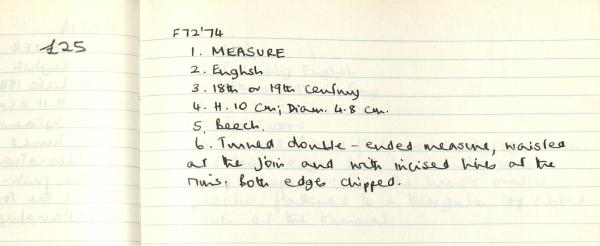 £25
F72'74
1. MEASURE
2. English
3. 18th or 19th century
4. H. 10 cm; Diam. 4.8 cm.
5. Beech.
6. Turned double-ended measure, waisted
at the join and with incised lines at the
rims. Both edges chipped.